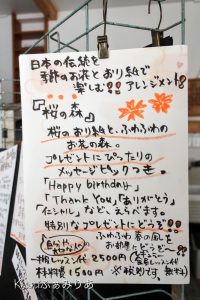 日本の伝統を
季節のお花とおり紙で
楽しむ!! アレンジメント!
『桜の森』
桜のおり紙と、ふわふわの
お花の森。
プレゼントにぴったりの
メッセージピックつき。
「Happy birthday」
「Thank You」「ありがとう」
「イニシャル」など、えらべます。
特別なプレゼントにどうぞ!!
ふわふわ春の風を
お部屋にどうぞ
一般レッスン付 2500円
材料費 1500円 ※税別です。
無料)